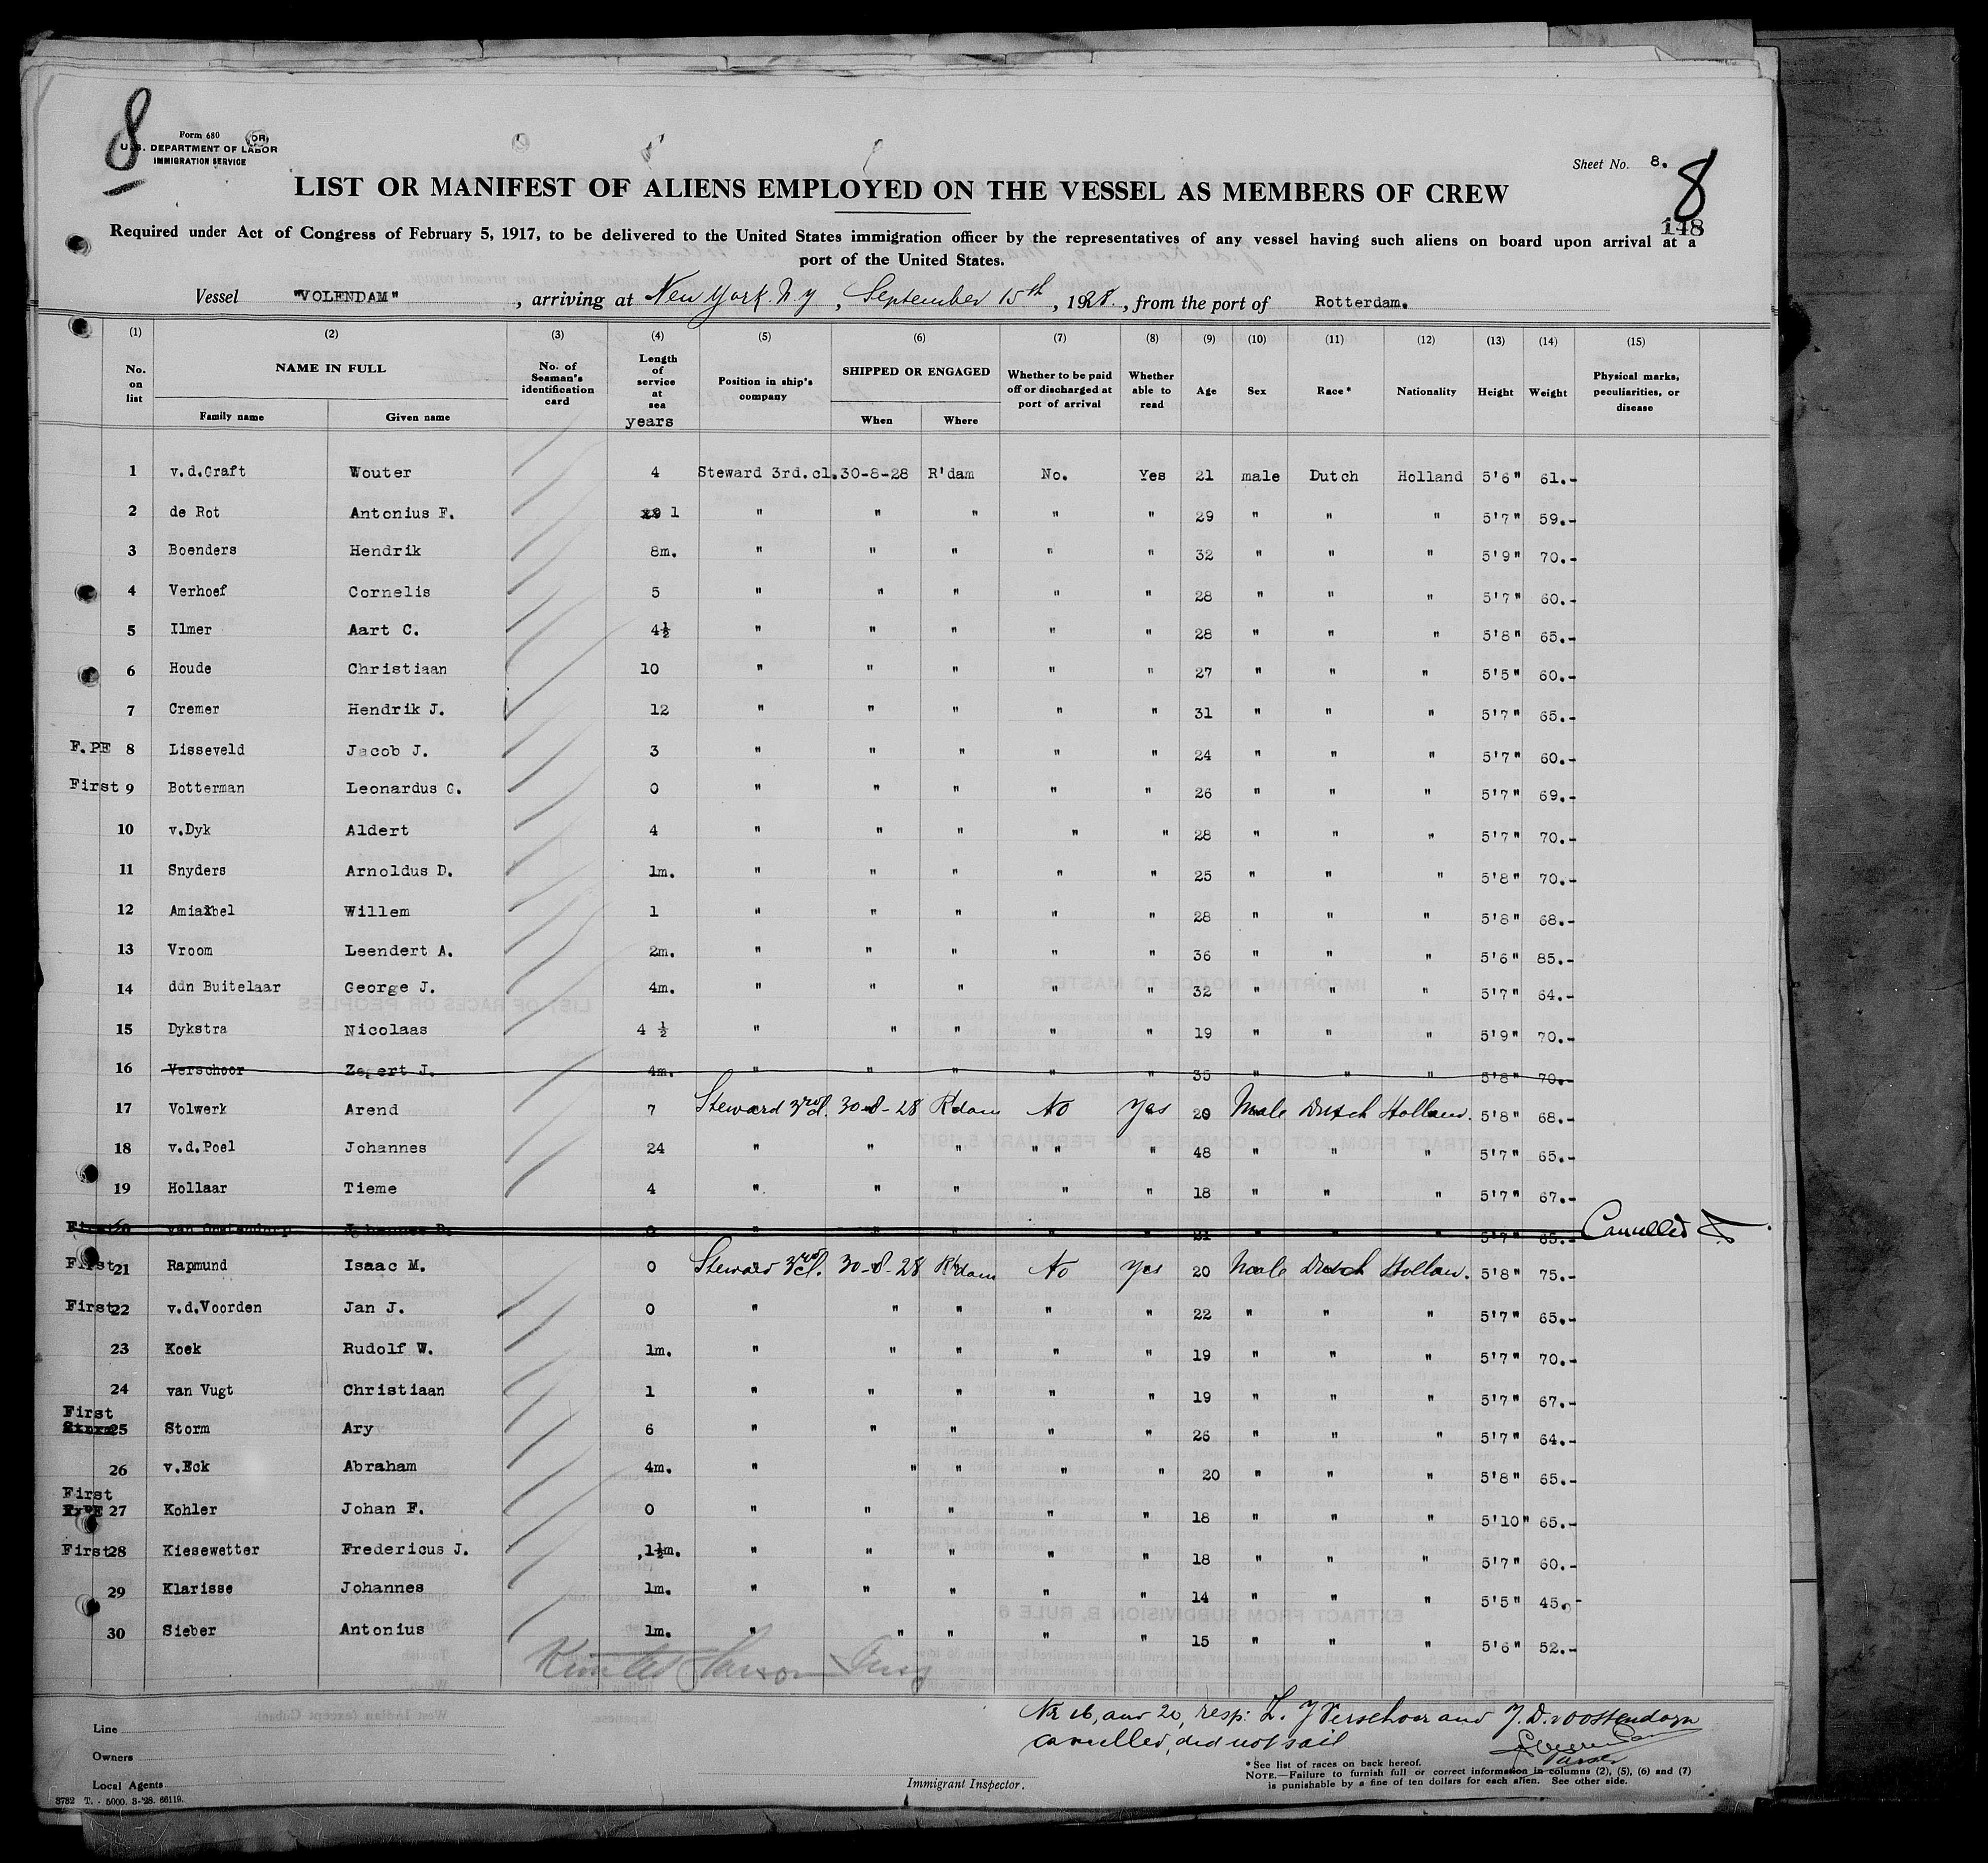 8
Form 680
U.S. DEPARTMENT OF LABOR
IMMIGRATION SERVICE
Sheet No. 8.
8
LIST OR MANIFEST OF ALIENS EMPLOYED ON THE VESSEL AS MEMBERS OF CREW
148
Required under Act of Congress of February 5, 1917, to be delivered to the United States immigration officer by the representatives of any vessel having such aliens on board upon arrival at a
port of the United States.
Vessel "VOLENDAM", arriving at New York. N.Y, September 15th, 1928., from the port of Rotterdam.
(1) (2) (3) (4) (5) (6) (7) (8) (9) (10) (11) (12) (13) (14) (15)
No. on list NAME IN FULL Family name Given name No. of Seaman's identification card Length of service at sea years Position in ship's company SHIPPED OR ENGAGED When Where Whether to be paid off or discharged at port of arrival Whether able to read Age Sex Race* Nationality Height Weight Physical marks, peculiarities, or disease
1 v.d.Graft Wouter 4 Steward 3rd.cl. 30-8-28 R'dam No. Yes 21 male Dutch Holland 5'6" 61.-
2 de Rot Antonius F. 1 " " " " " 29 " " " 5'7" 59.-
3 Boenders Hendrik 8m. " " " " " 32 " " " 5'9" 70.-
4 Verhoef Cornelis 5 " " " " " 28 " " " 5'7" 60.-
5 Ilmer Aart C. 4½ " " " " " 28 " " " 5'8" 65.-
6 Houde Christiaan 10 " " " " " 27 " " " 5'5" 60.-
7 Cremer Hendrik J. 12 " " " " " 31 " " " 5'7" 65.-
F.PE 8 Lisseveld Jacob J. 3 " " " " " 24 " " " 5'7" 60.-
First 9 Botterman Leonardus G. 0 " " " " " 26 " " " 5'7" 69.-
10 v.Dyk Aldert 4 " " " " " 28 " " " 5'7" 70.-
11 Snyders Arnoldus D. 1m. " " " " " 25 " " " 5'8" 70.-
12 Amiabel Willem 1 " " " " " 28 " " " 5'8" 68.-
13 Vroom Leendert A. 2m. " " " " " 36 " " " 5'6" 85.-
14 ddn Buitelaar George J. 4m. " " " " " 32 " " " 5'7" 64.-
15 Dykstra Nicolaas 4 ½ " " " " " 19 " " " 5'9" 70.-
16 Verschoor Zegert J. 4m. " " " " " 35 " " " 5'8" 70.-
17 Volwerk Arend 7 Steward 3rd cl. 30-8-28 R'dam No Yes 20 Male Dutch Holland. 5'8" 68.-
18 v.d.Poel Johannes 24 " " " " " " 48 " " " 5'7" 65.-
19 Hollaar Tieme 4 " " " " " 18 " " " 5'7" 67.-
First 20 van Oostendorp Johannes D. 0 " " " " " 21 " " " 5'7" 65.- Cancelled
First 21 Rapmund Isaac M. 0 Steward 3rd cl. 30-8-28 R'dam No Yes 20 Male Dutch Hollan. 5'8" 75.-
First 22 v.d.Voorden Jan J. 0 " " " " " 22 " " " 5'7" 65.-
23 Koek Rudolf W. 1m. " " " " " 19 " " " 5'7" 70.-
24 van Vugt Christiaan 1 " " " " " 19 " " " 5'7" 67.-
First
25 Storm Ary 6 " " " " " 26 " " " 5'7" 64.-
26 v.Eck Abraham 4m. " " " " " 20 " " " 5'8" 65.-
First
27 Kohler Johan F. 0 " " " " " 18 " " " 5'10" 65.-
First 28 Kiesewetter Fredericus J. 1½m. " " " " " 18 " " " 5'7" 60.-
29 Klarisse Johannes 1m. " " " " " 14 " " " 5'5" 45.-
30 Sieber Antonius 1m. " " " " " 15 " " " 5'6" 52.-
Nr 16, and 20, resp: Z. J Verschoor and J. D. v Oostendorp
cancelled, did not sail
Purser
Line
Owners
Local Agents
Immigrant Inspector.
* See list of races on back hereof.
NOTE.—Failure to furnish full or correct information in columns (2), (5), (6) and (7)
is punishable by a fine of ten dollars for each alien. See other side.
3782 T. - 5000. 3-'28. 66119.